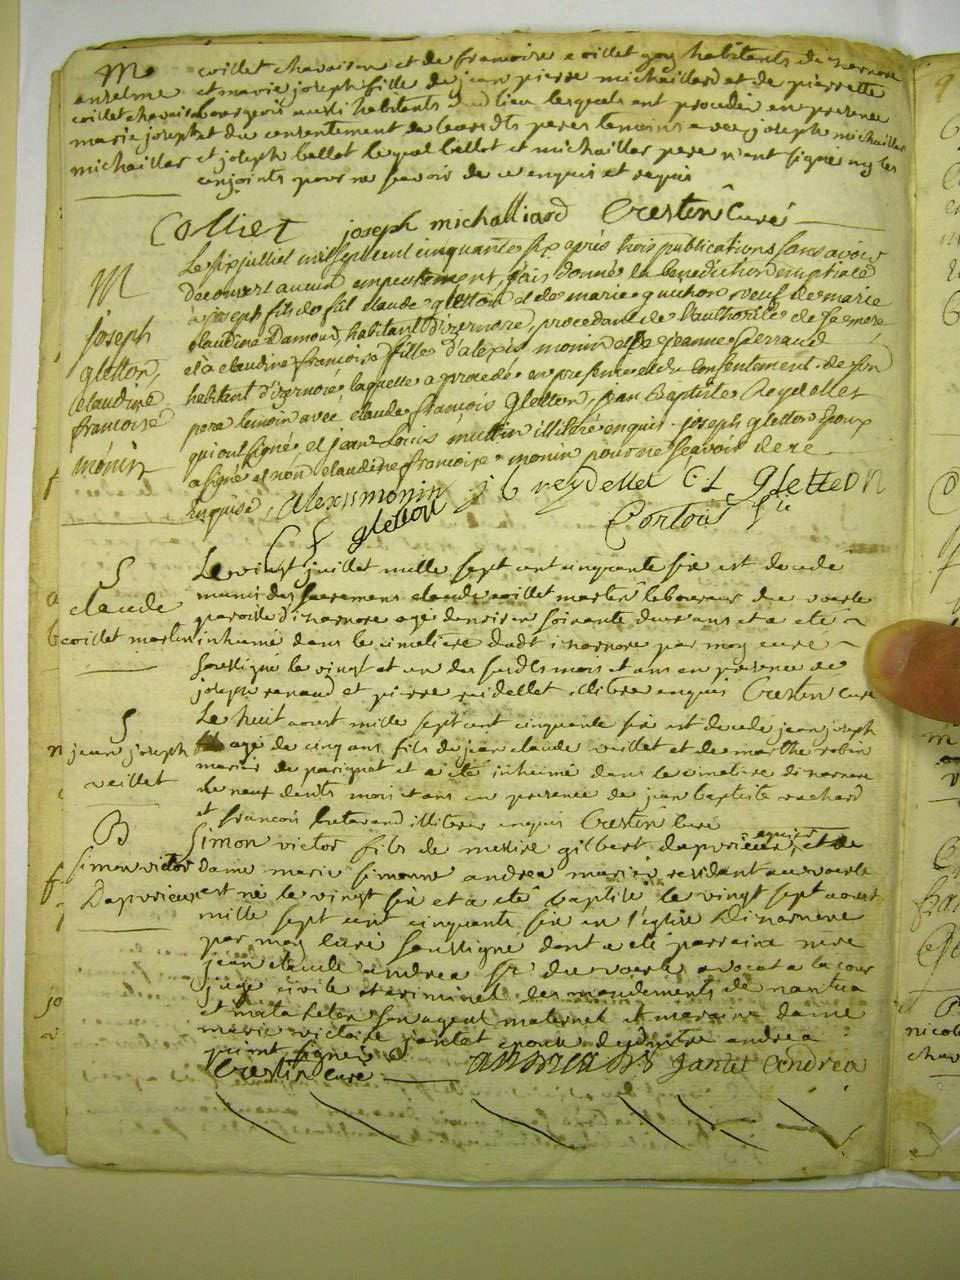 M
anselme
coillet chavaisson
marie joseph
michaillar
coillet chavaison et de francoise coillet goy habitants du
et marie joseph fille de jean pierre michaillard et de pierrette
bourgeois aussi habitants dud lieu lesquels ont procedé en presence
et du consentement de leursdts peres temoins avec joseph michaillar
et joseph ballot lequel ballot et michaillar pere n'ont signé ny les
conjoints pour ne scavoir de ce enquis et requis
Colliet joseph michalliard Crestin Curé
M
joseph
gletton,
claudine
francoise
monin
Le six juillet mil sept cent cinquante six après trois publications sans avoir
decouvert aucun empechement, j'ai donné la benediction nuptiale
à joseph fils de fû claude gletton et de marie guichon veuf de marie
claudine Damoud, habitant d'izernore, procedant de l'authorité de sa mere
et à claudine francoise fille d'alexis monin et de jeanne Perraud
habitant d'izernore, laquelle a procedé en presence et du consentement de son
pere temoin avec claude françois Gletton, jean Baptiste Reydellet
qui ont signé, et jean Louis mullin illitéré enquis. joseph gletton Epoux
a signé et non claudine francoise monin pour ne sçavoir de ce
enquise, Alexis monin j b reydellet C L gletteon
C f gletton Cortois
S
claude
coillet martin
Le vingt juillet mille sept cent cinquante six est decedé
muni des sacremens claude coillet martin laboureur du voerle
paroisse d'izarnore agé d'environ soixante deux ans et a eté
inhumé dans le cimetiere dudt izarnore par moy curé
soussigné le vingt et un des susdts mois et ans en presence de
joseph renaud et pierre reidellet illiteré enquis Crestin Curé
S
jean joseph
veillet
Le huit aoust mille sept cent cinquante six est decedé jean joseph
agé de cinq ans fils de jean claude veillet et de marthe robin
mariés de parignat et a eté inhumé dans le cimetiere d'izarnore
le neuf desdts mois et ans en presence de jean baptiste rachard
et francois illiterés enquis Crestin Curé
B
Simon victor
Dapvrieux
Simon victor fils de messire gilbert dapvrieux, ecuier et de
dame marie simonne andrea mariés residant au voerle
est né le vingt six et a eté baptisé le vingt sept aoust
mille sept cent cinquante six en l'eglise Dizarnore
par moy curé soussigné dont a eté parrain mre
jean claude andrea sr du voerle avocat a la cour
juge civile et criminel des mandements de nantua
et mataffelon son ayeul maternel et maraine dame
marie victoire jantet epouse dudit sr andrea
qui ont signés
Crestin curé andrea Jantet Andrea